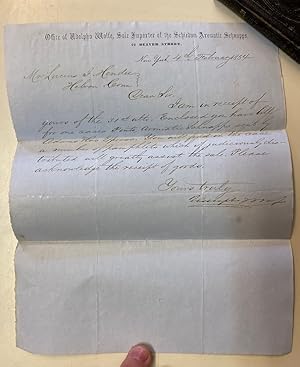 Office of Udolpho Wolfe, Sole Importer of the Schiedam Aromatic Schnapps.
22 BEAVER STREET.
New York 4th February 1854
Mr Lucius J. Hendee
Hebron Conn.
Dear Sir
I am in receipt of
yours of the 31st ulto. Enclosed you have bill
for one
a number of pamphlets which if judiciously dis-
tributed will greatly assist the sale. Please
acknowledge the receipt of goods.
Yours truly
Udolpho Wolfe